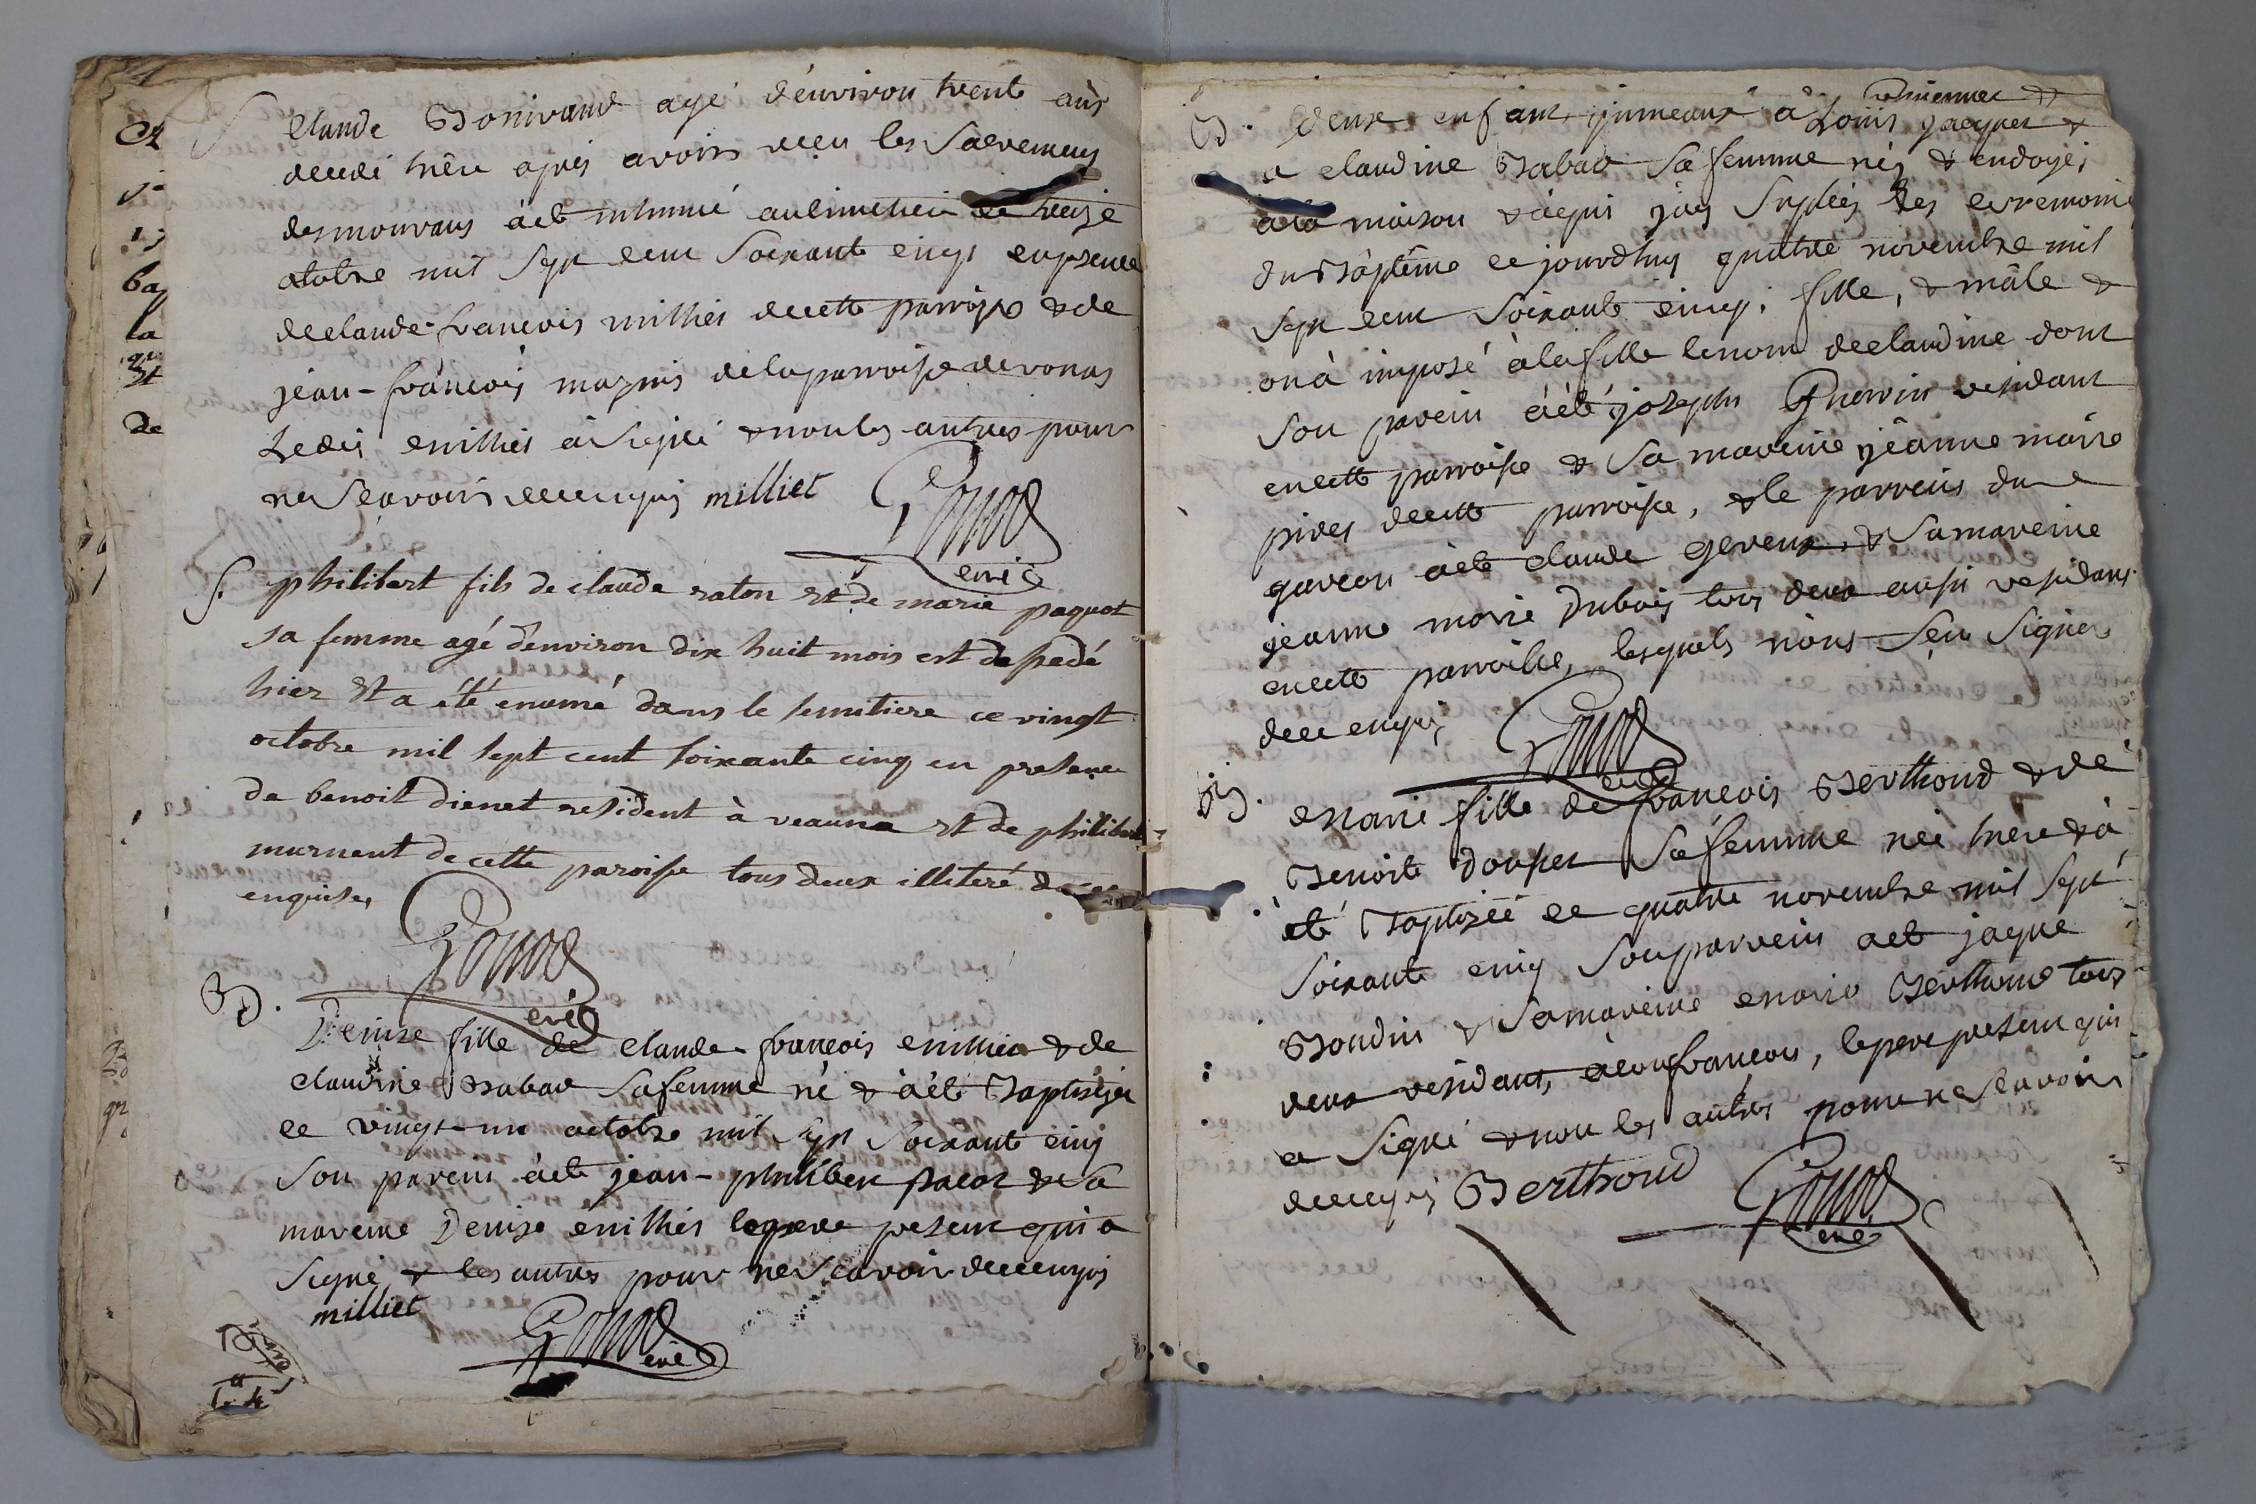 S
Claude Bonivand agé d'environ trent ans
decedé hière apres avoirs recu les Sacremens
des mourans àeté inhumé au Cimetiere ce treize
octobre mil Sept cent Soixante cinq en presence
de claude-francois millier de cette parroisse & de
jean-françois magnis de la parroisse de vonas
Ledit millier a Signé & non les autres pour
ne Sçavoirs de ce enquis milliet
Gonod
curé
S. philibert fils de claude raton et de marie paquot
sa femme agé d'environ dix huit mois est dessedé
hier et a été enumé dans le semitiere ce vingt
octobre mil sept cent soixante cinq en presence
de benoit dienet resident à veauna et de philibert
murnent de cette paroisse tous deux illiteré de ce
enquises
Gonod
curé
B.
Denise fille de claude-francois millier & de
claudine Babad Sa femme né & àeté Baptisée
ce vingt-un octobre mil Sept Soixante cinq
Son parein àeté jean-philibert pacot & Sa
mareine Denise millier le pere present qui a
Signé & les autres pour ne Scavoir de ce enquis
milliet
Gonod
curé
B. Deux enfant jumeaux à Louis jacques &
a claudine Babad Sa femme nés & endoyés
ala maison & aqui jay Supleés les ceremonies
du Baptême ce jourdhuy quattre novembre mil
Sept cent Soixante cinq; fille, & mâle &
on à imposé àla fille le nom de claudine dont
Son parein àeté joseph Guerin residant
en cette parroisse & Sa mareine jeanne marie
pives de cette parroisse, & le parreins du
garcon àeté claude Gereux & Sa mareine
jeanne marie Dubois tous deux aussi residans
en cette parroisse, lesquels n'ons Seu Signer
de ce enquis
Gonod
curé
B. Marie fille de francois Berthoud & de
Benoite Doupet Sa femme née hiere & à
eté Baptisée ce quattre novembre mil Sept
Soixante cinq Son parreins aeté jaque
Boudin & Sa mareine marie Berthoud tous
deux residants, francois, le pere present qui
a Signé & non les autres pour ne Scavoirs
de ce enquis Berthoud
Gonod
curé